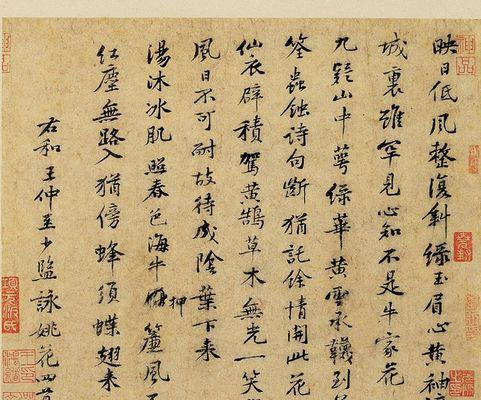 映日低風整復斜綠玉眉心黃袖
城裏雖罕見心知不是牛家花
九疑山中萼綠華黃雲承襪到
筌蟲蝕詩句斷猶託餘情開此花
仙衣辟積駕黃鵠草木無光一笑
風日不可耐故待成陰葉下來
湯沐冰肌照春色海牛押簾風
紅塵無路入猶傍蜂須蝶翅來
右和王仲至少監詠姚花四首